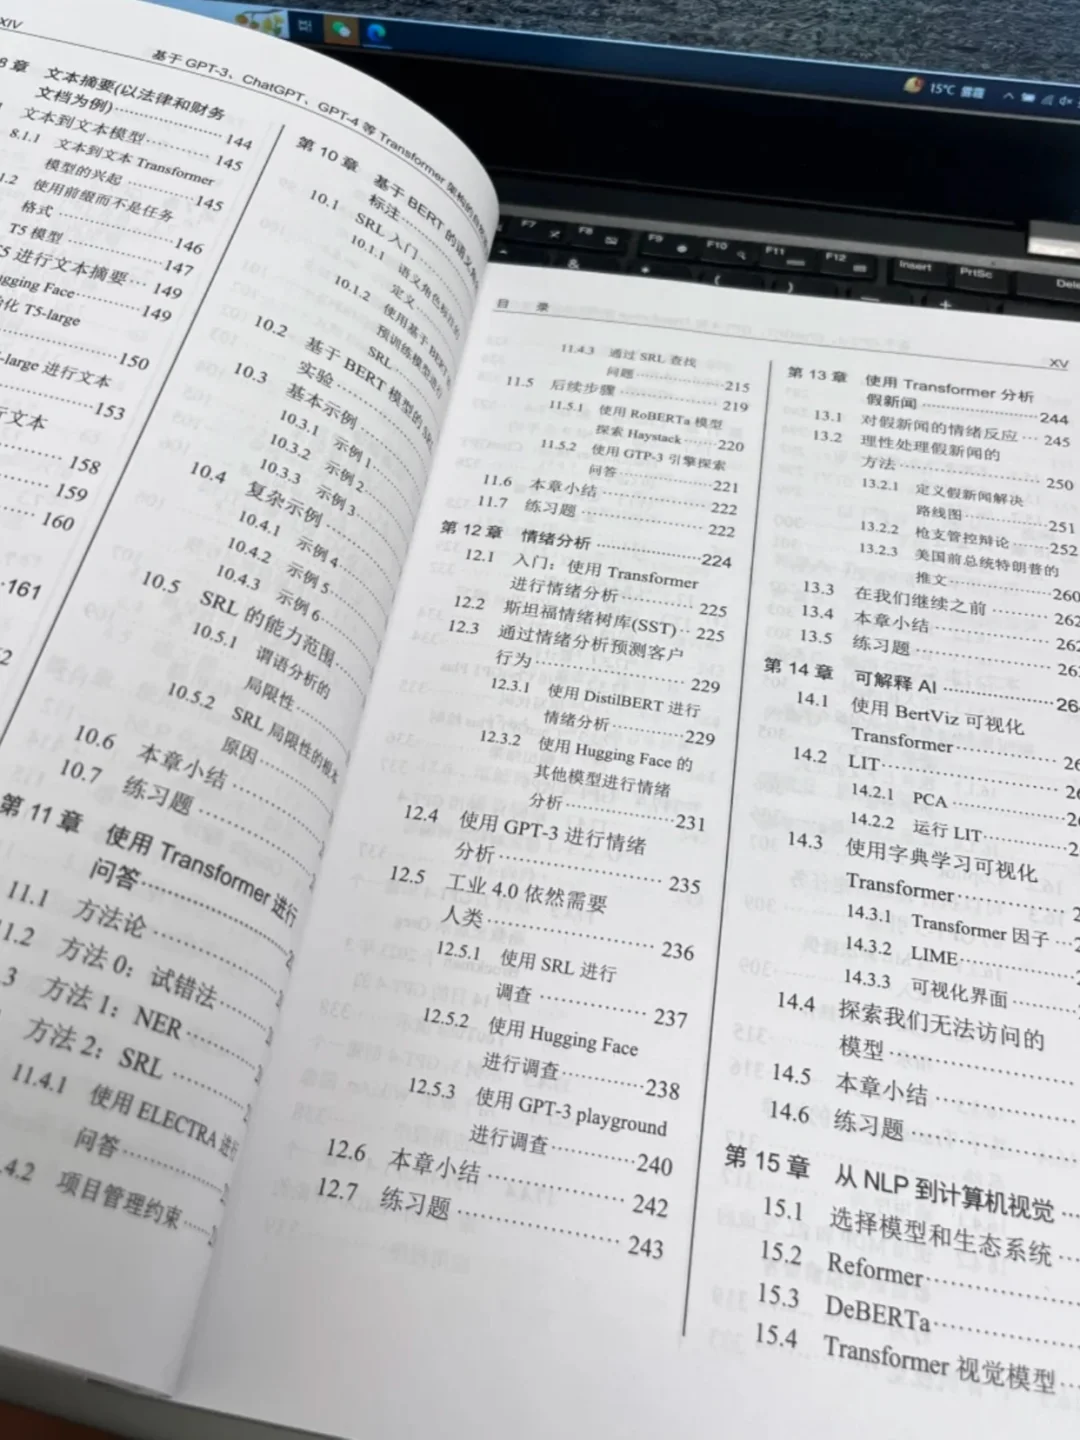 XIV
基于 GPT-3、ChatGPT、GPT-4 等 Transformer 架构的自然
8 章 文本摘要(以法律和财务
文档为例) 144
文本到文本模型 145
8.1.1 文本到文本 Transformer
模型的兴起 145
1.2 使用前缀而不是任务
格式 146
T5 模型 147
5 进行文本摘要 149
gging Face 149
化 T5-large
150
-large 进行文本
153
行文本
158
159
160
161
第 10 章 基于 BERT 的语义角
标注
10.1 SRL 入门
10.1.1 语义角色标注的
定义
10.1.2 使用基于 BERT
预训练模型进行
SRL
10.2 基于 BERT 模型的 SRL
实验
10.3 基本示例
10.3.1 示例 1
10.3.2 示例 2
10.3.3 示例 3
10.4 复杂示例
10.4.1 示例 4
10.4.2 示例 5
10.4.3 示例 6
10.5 SRL 的能力范围
10.5.1 谓语分析的
局限性
10.5.2 SRL 局限性的根本
原因
10.6 本章小结
10.7 练习题
第 11 章 使用 Transformer 进行
问答
11.1 方法论
11.2 方法 0：试错法
3 方法 1：NER
方法 2：SRL
11.4.1 使用 ELECTRA 进行
问答
4.2 项目管理约束
目 录
XV
11.4.3 通过 SRL 查找
问题 215
11.5 后续步骤 219
11.5.1 使用 RoBERTa 模型
探索 Haystack 220
11.5.2 使用 GTP-3 引擎探索
问答 221
11.6 本章小结 222
11.7 练习题 222
第 12 章 情绪分析 224
12.1 入门：使用 Transformer
进行情绪分析 225
12.2 斯坦福情绪树库(SST) 225
12.3 通过情绪分析预测客户
行为 229
12.3.1 使用 DistilBERT 进行
情绪分析 229
12.3.2 使用 Hugging Face 的
其他模型进行情绪
分析 231
12.4 使用 GPT-3 进行情绪
分析 235
12.5 工业 4.0 依然需要
人类 236
12.5.1 使用 SRL 进行
调查 237
12.5.2 使用 Hugging Face
进行调查 238
12.5.3 使用 GPT-3 playground
进行调查 240
12.6 本章小结 242
12.7 练习题 243
第 13 章 使用 Transformer 分析
假新闻 244
13.1 对假新闻的情绪反应 245
13.2 理性处理假新闻的
方法 250
13.2.1 定义假新闻解决
路线图 251
13.2.2 枪支管控辩论 252
13.2.3 美国前总统特朗普的
推文 260
13.3 在我们继续之前 262
13.4 本章小结 262
13.5 练习题
第 14 章 可解释 AI
14.1 使用 BertViz 可视化
Transformer
14.2 LIT
14.2.1 PCA
14.2.2 运行 LIT
14.3 使用字典学习可视化
Transformer
14.3.1 Transformer 因子
14.3.2 LIME
14.3.3 可视化界面
14.4 探索我们无法访问的
模型
14.5 本章小结
14.6 练习题
第 15 章 从 NLP 到计算机视觉
15.1 选择模型和生态系统
15.2 Reformer
15.3 DeBERTa
15.4 Transformer 视觉模型
15°C
F7
F8
F9
F10
F11
F12
Insert
PrtSc
Dele
&
*
(
)